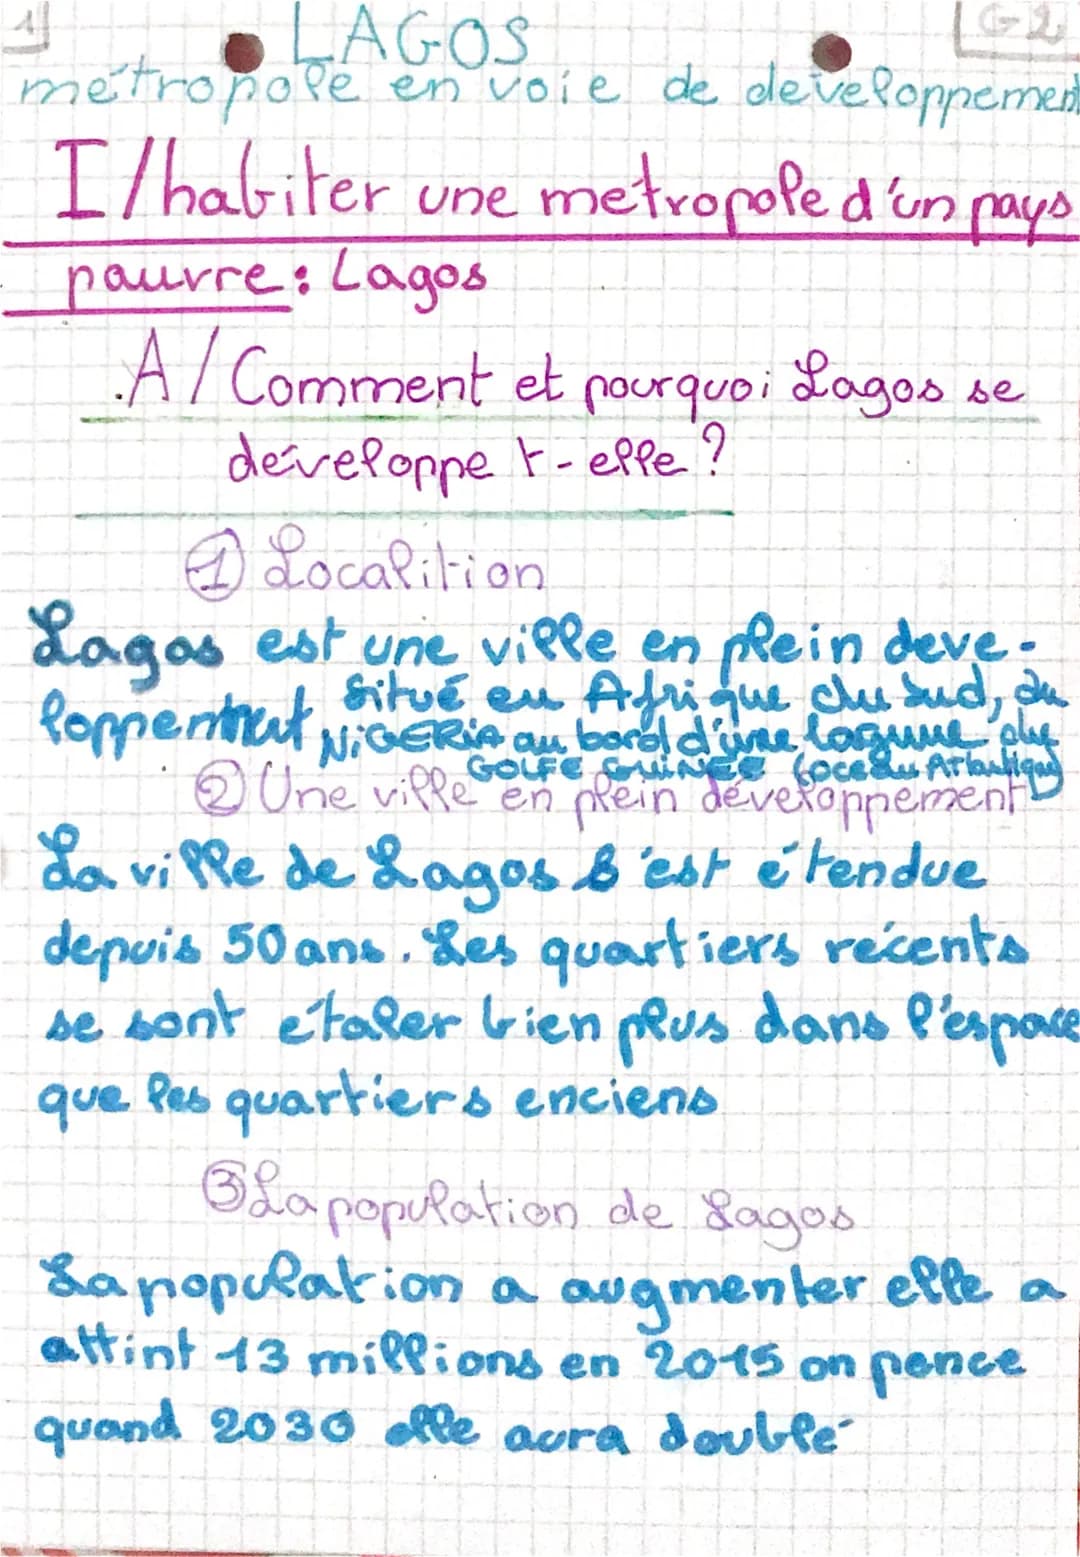 1
G2
LAGOS
métropole en voie de développement
I/habiter une métropole d'un pays
pauvre: Lagos
A/Comment et pourquoi Lagos se
développe t-elle ?
① Localition
Lagos est une ville en plein deve-
loppement situé en Afrique du Sud, au
NIGERIA au bord d'une lagune du
GOLFE GUINEE (océan Atlantique)
② Une ville en plein développement
La ville de Lagos s'est étendue
depuis 50 ans. Les quartiers récents
se sont étaler bien plus dans l'espace
que les quartiers enciens
③ La population de Lagos
La population a augmenter elle a
attint 13 millions en 2015 on pence
quand 2030 elle aura doublé